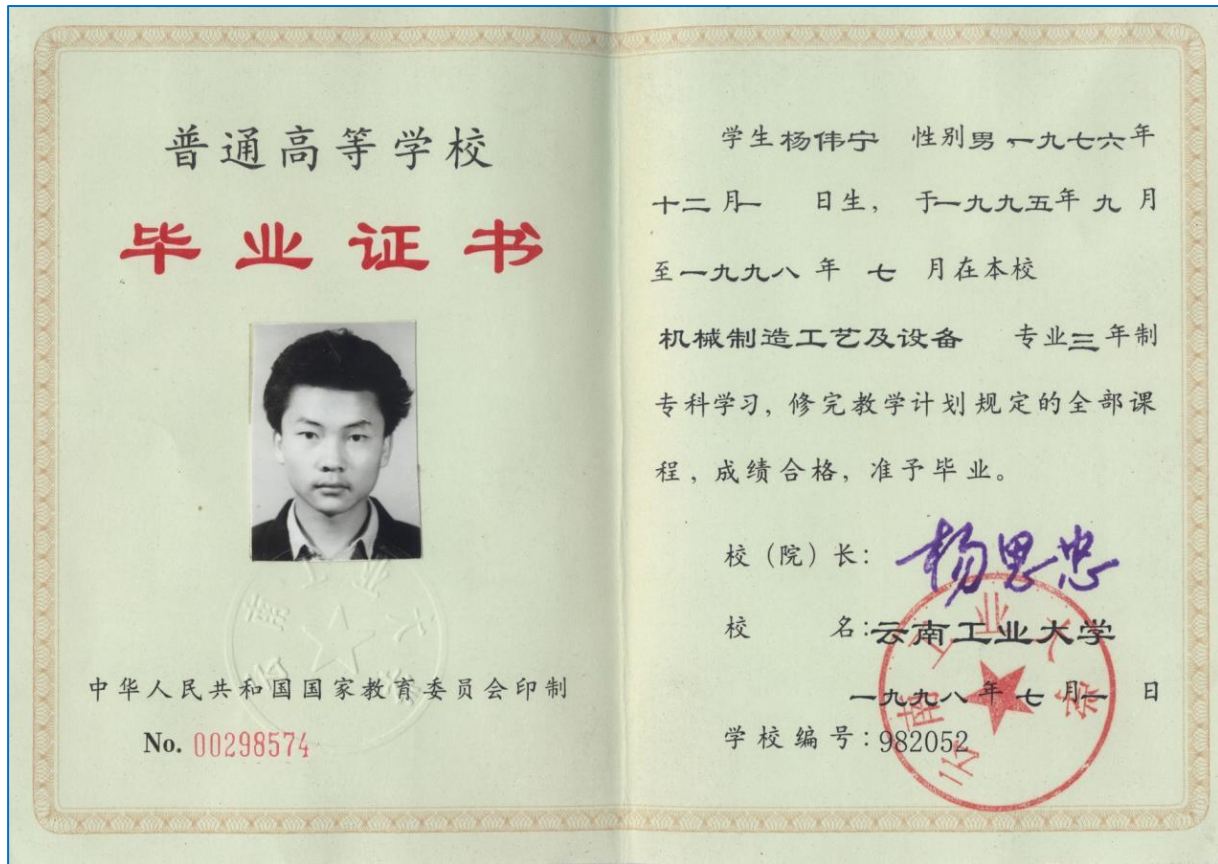 普通高等学校
毕业证书
中华人民共和国国家教育委员会印制
No. 00298574
学生杨伟宁 性别男,一九七六年
十二月一 日生, 于一九九五年 九 月
至一九九八 年 七 月在本校
机械制造工艺及设备 专业三年制
专科学习, 修完教学计划规定的全部课
程, 成绩合格, 准予毕业。
校 (院) 长: 杨思忠
校 名: 云南工业大学
一九九八年七月一 日
学校编号: 982052
云南工业大学
云南工业大学